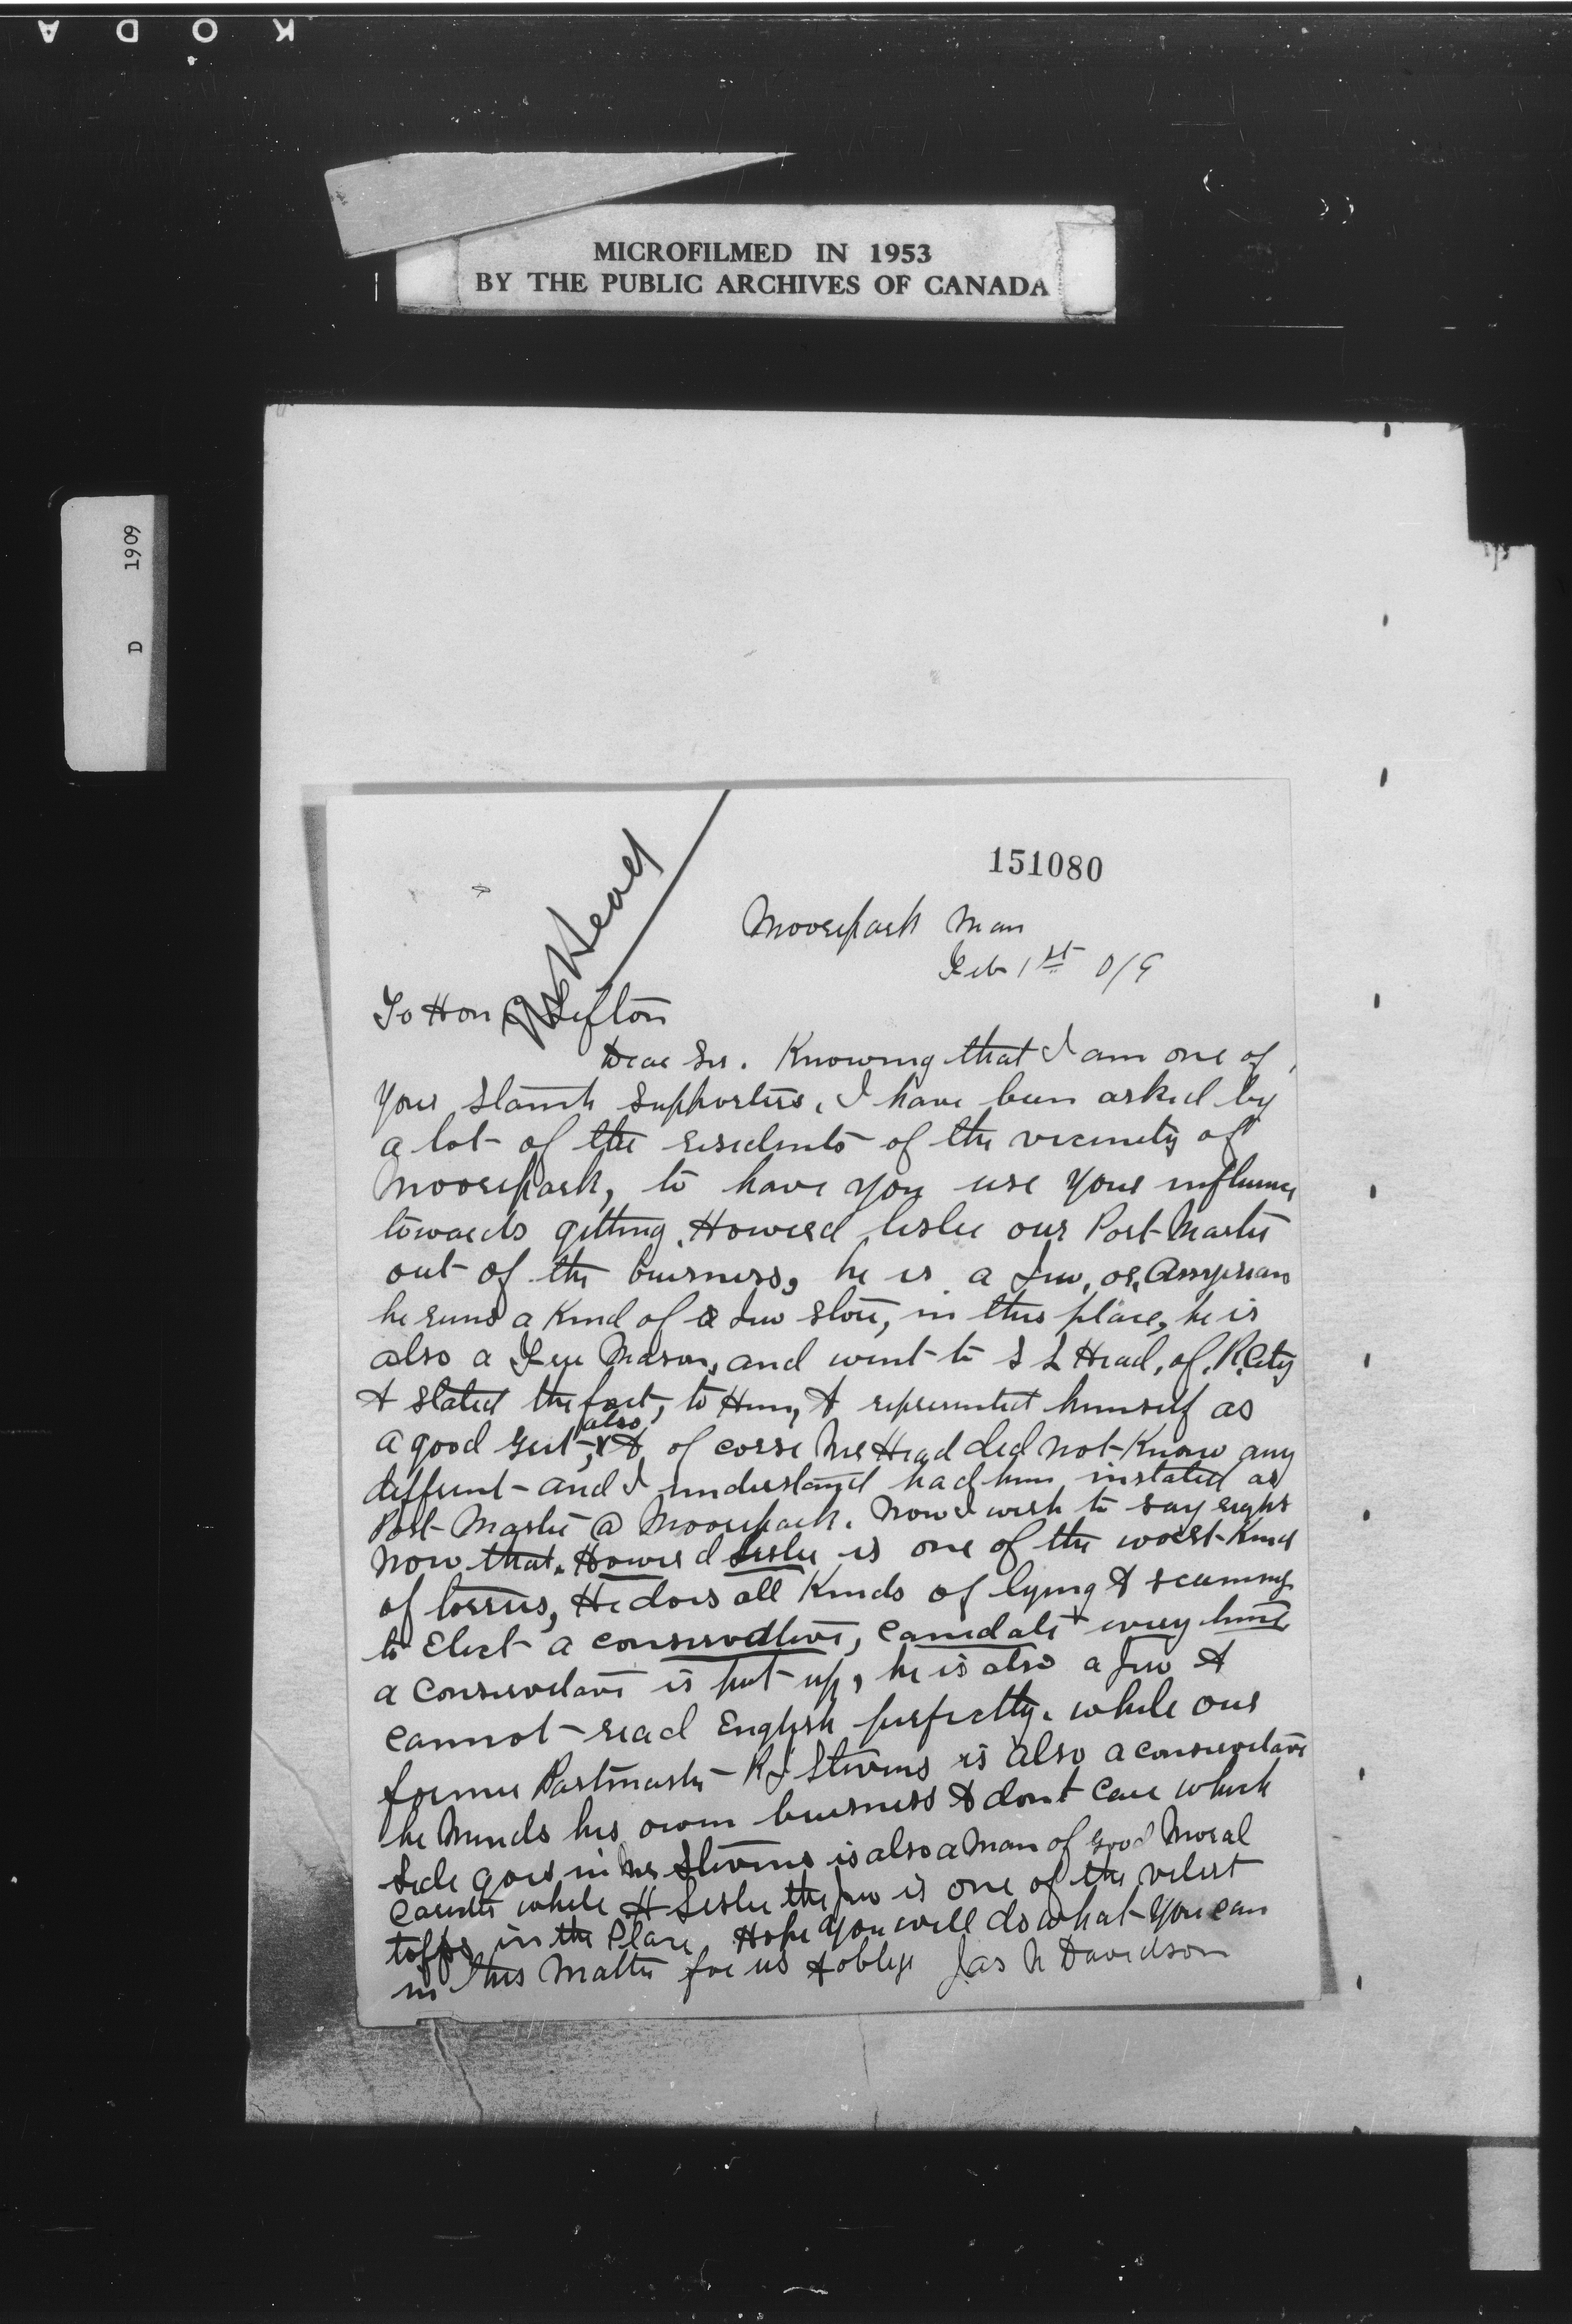 KODA
MICROFILMED IN 1953
BY THE PUBLIC ARCHIVES OF CANADA
D 1909
151080
Head
Moorepark Man
Feb 1st 0/9
To Hon C Sifton
Dear Sir. Knowing that I am one of
your stanch supporters, I have been asked by
a lot of the residents of the vicinity of
Moorepark, to have you use your influence
towards getting Howerd Leslie our Post Master
out of the buisness, he is a Jew, or, Assyrian
he runs a kind of a Jew store, in this place, he is
also a Free Mason, and went to S L Head, of R. City
& stated the fact, to Him, & represented himself as
a good Grit, also & of corse Mr Head did not know any
different and I understand had him instated as
Post-Master @ Moorepark. Now I wish to say right
now that Howerd Leslie is one of the worst kind
of torries, He does all kinds of lying & scheming
to Elect a conservative, canidate every time
a conservative is put up, he is also a Jew &
cannot read English perfectly. while our
former Postmaster R J Stevens is also a conservative
he minds his own buisness & dont care which
side goes in Mr Stevens is also a man of good Moral
while H Leslie the Jew is one of the vilest
toffs in the Place Hope you will do what you can
in this Matter for us & oblige Jas N Davidson